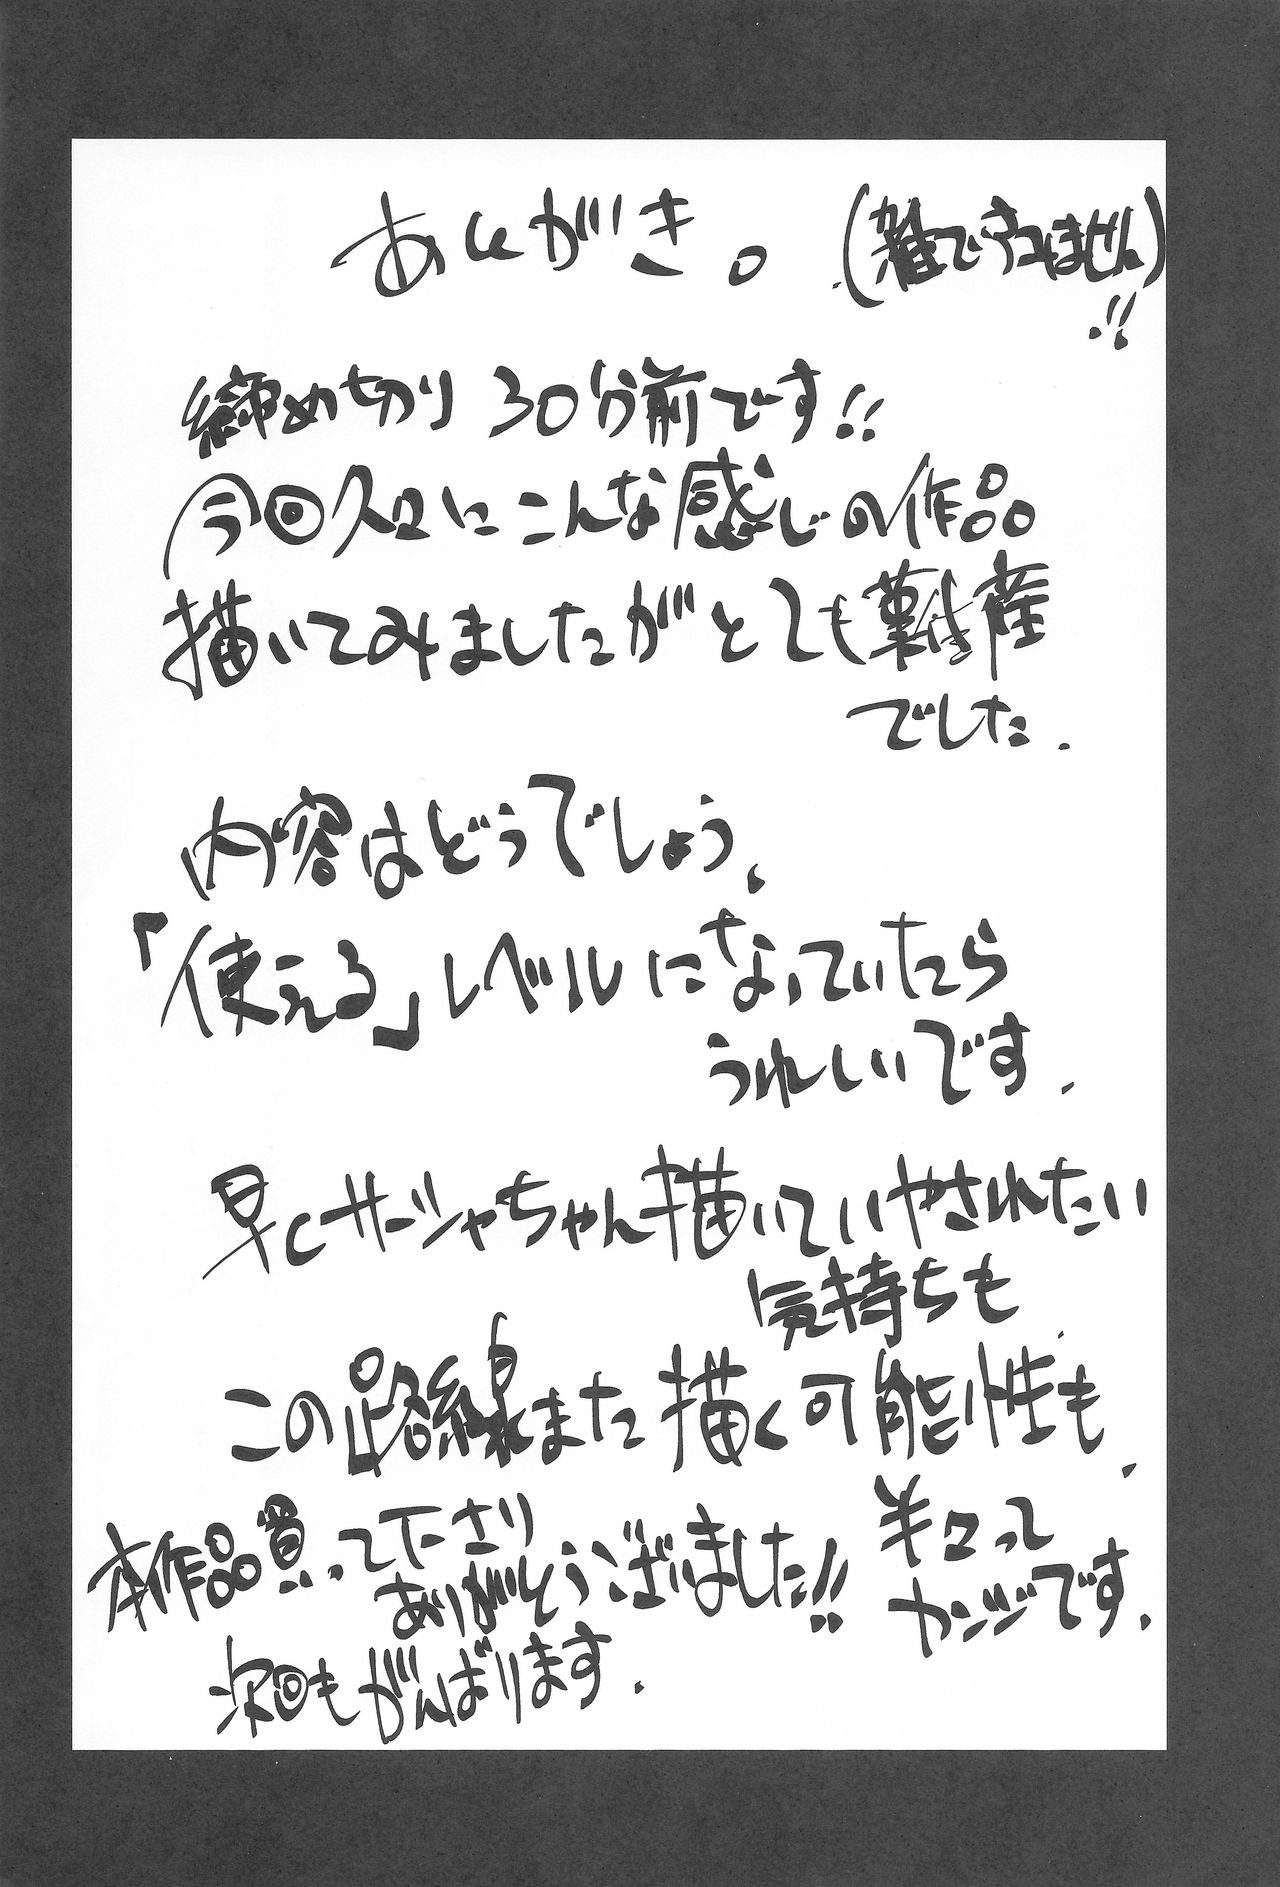 あとがき。(雑ですみません)!!
締め切り30分前です!!
今回久々にこんな感じの作品
描いてみましたがとても難産
でした.
内容はどうでしょう、
「使える」レベルになっていたら
うれしいです.
早くサーシャちゃん描いていやされたい
気持ちも、
この路線また描く可能性も、
半々って
カンジです.
本作品買って下さり
ありがとうございました!!
次回もがんばります.